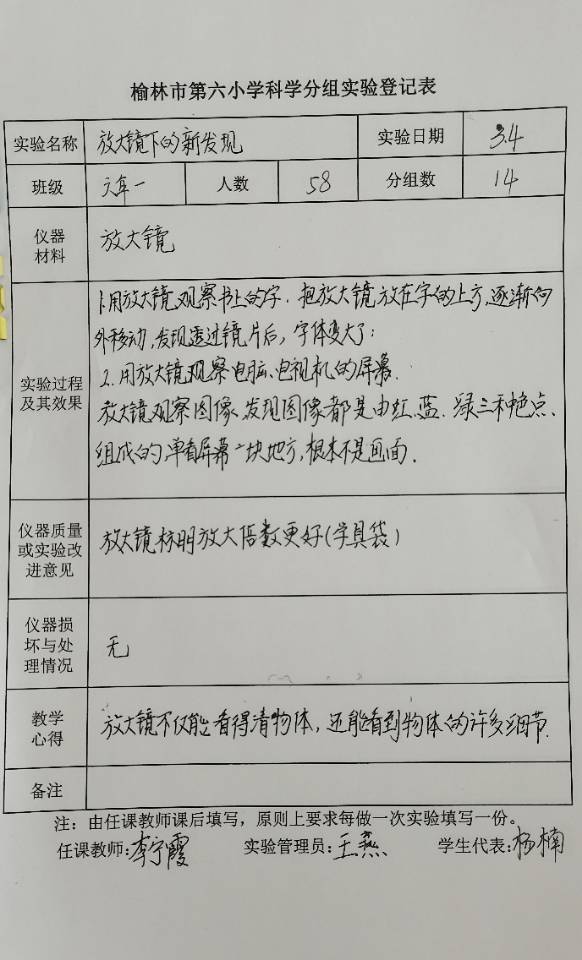 榆林市第六小学科学分组实验登记表
实验名称 放大镜下的新发现 实验日期 3.4
班级 六年一 人数 58 分组数 14
仪器
材料
放大镜
实验过程
及其效果
1.用放大镜观察书上的字.把放大镜放在字的上方,逐渐向
外移动,发现透过镜片后,字体变大了:
2.用放大镜观察电脑、电视机的屏幕.
放大镜观察图像.发现图像都是由红.蓝.绿三种色点、
组成的.单看屏幕一块地方,根本不是画面.
仪器质量
或实验改
进意见
放大镜标明放大倍数更好(学具袋)
仪器损
坏与处
理情况
无
教学
心得
放大镜不仅能看得清物体,还能看到物体的许多细节.
备注
注:由任课教师课后填写,原则上要求每做一次实验填写一份。
任课教师:李宁霞 实验管理员:王燕 学生代表:杨楠